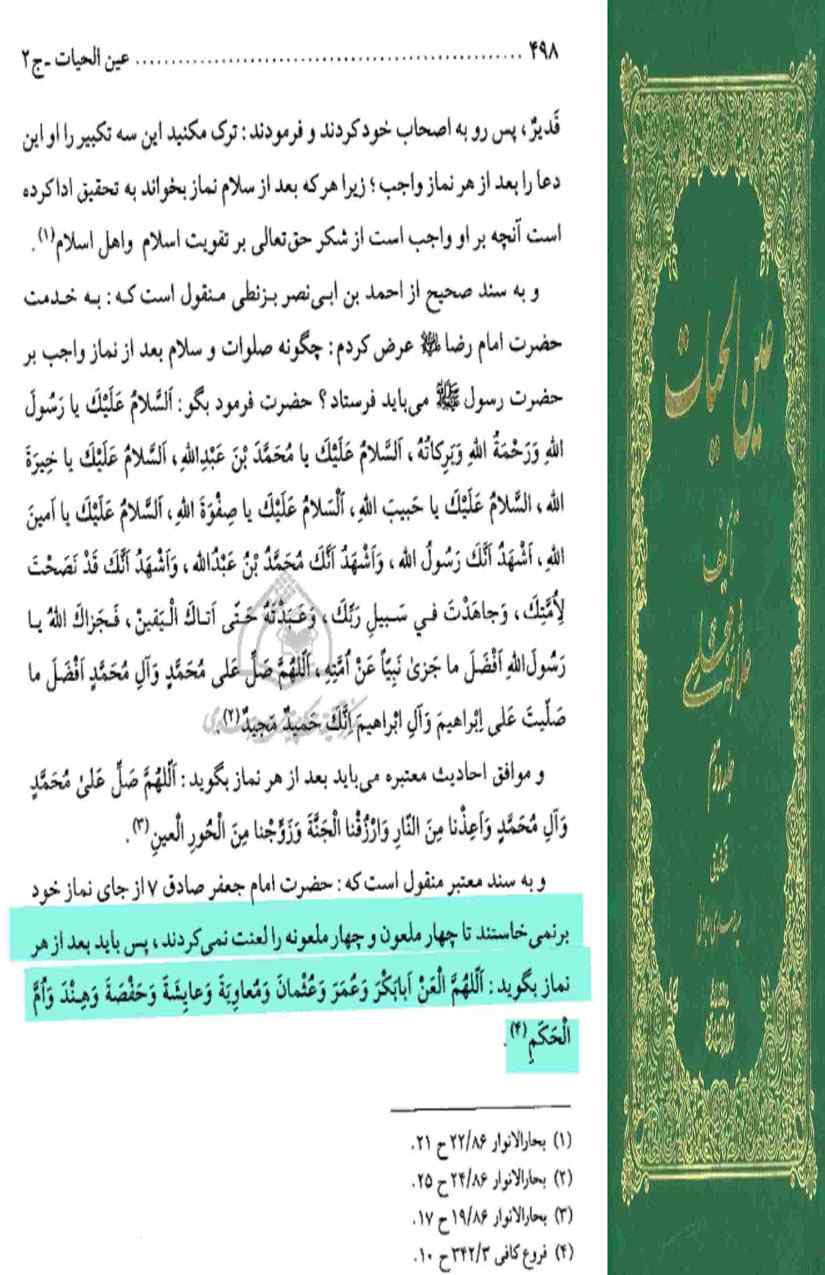 ۴۹۸ ........ عین الحیات -ج۲
قَدیرٌ، پس رو به اصحاب خود کردند و فرمودند : ترک مکنید این سه تکبیر را او این
دعا را بعد از هر نماز واجب؛ زیرا هر که بعد از سلام نماز بخواند به تحقیق ادا کرده
است آنچه بر او واجب است از شکر حق‌تعالی بر تقویت اسلام واهل اسلام(۱).
و به سند صحیح از احمد بن ابی‌نصر بزنطی منقول است که : به خدمت
حضرت امام رضا عرض کردم : چگونه صلوات و سلام بعد از نماز واجب بر
حضرت رسول ﷺ می‌باید فرستاد؟ حضرت فرمود بگو : اَلسَّلامُ عَلَیْكَ یا رَسُولَ
اللهِ وَرَحْمَةُ اللهِ وَبَرَکاتُهُ، اَلسَّلامُ عَلَیْكَ یا مُحَمَّدَ بْنَ عَبْدِاللهِ، اَلسَّلامُ عَلَیْكَ یا خِیَرَةَ
الله، السَّلامُ عَلَیْكَ یا حَبیبَ اللهِ، اَلْسَلامُ عَلَیْكَ یا صِفْوَةَ اللهِ، اَلسَّلامُ عَلَیْكَ یا اَمینَ
اللهِ، اَشْهَدُ اَنَّكَ رَسُولُ الله، وَاَشْهَدُ اَنَّكَ مُحَمَّدُ بْنُ عَبْدُالله، وَاَشْهَدُ اَنَّكَ قَدْ نَصَحْتَ
لِاُمَّتِكَ، وَجاهَدْتَ في سَبیلِ رَبِّكَ، وَعَبَدْتَهُ حَتّی اَتاكَ الْیَقینْ، فَجَزاكَ اللهُ یا
رَسُولَ‌اللهِ اَفْضَلَ ما جَزیٰ نَبِیّاً عَنْ اُمَّتِهِ، اَللّٰهُمَّ صَلِّ عَلی مُحَمَّدٍ وَآلِ مُحَمَّدٍ اَفْضَلَ ما
صَلَّیتَ عَلی اِبْراهیمَ وَآلِ ابْراهیمَ اِنَّكَ حَمیدٌ مَجیدٌ(۲).
و موافق احادیث معتبره می‌باید بعد از هر نماز بگوید : اَللّٰهُمَّ صَلِّ عَلیٰ مُحَمَّدٍ
وَآلِ مُحَمَّدٍ وَاَعِذْنا مِنَ النّارِ وَارْزُقْنا الْجَنَّةَ وَزَوِّجْنا مِنَ الْحُورِ الْعینِ(۳).
و به سند معتبر منقول است که : حضرت امام جعفر صادق ۷ از جای نماز خود
برنمی‌خاستند تا چهار ملعون و چهار ملعونه را لعنت نمی‌کردند، پس باید بعد از هر
نماز بگوید : اَللّٰهُمَّ الْعَنْ اَبابَکْرَ وَعُمَرَ وَعُثْمانَ وَمُعاوِیَةَ وَعایِشَةَ وَحَفْصَةَ وَهِنْدَ وَاُمَّ
الْحَکَمِ(۴).
(۱) بحارالانوار ۲۲/۸۶ ح ۲۱.
(۲) بحارالانوار ۲۴/۸۶ ح ۲۵.
(۳) بحارالانوار ۱۹/۸۶ ح ۱۷.
(۴) فروع کافی ۳۴۲/۳ ح ۱۰.
عین الحیات
تألیف
علامه مجلسی
جلد دوم
تحقیق